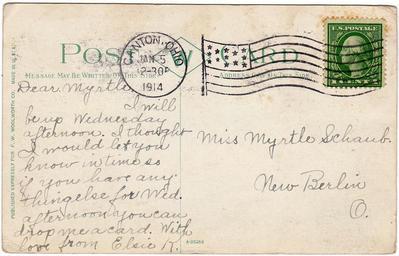 POST CARD
CANTON, OHIO
JAN 5
12-30P
1914
U.S. POSTAGE
MESSAGE MAY BE WRITTEN ON THIS SIDE
ADDRESS
PUBLISHED EXPRESSLY FOR F. W. WOOLWORTH CO.
Dear Myrtle
I will
be up Wednesday
afternoon. I thought
I would let you
know in time so
if you have any
thing else for Wed.
afternoon you can
drop me a card. With
love from Elsie K.
Miss Myrtle Schaub.
New Berlin
O.